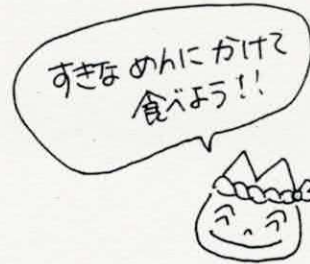 すきな めんに かけて
食べよう!!